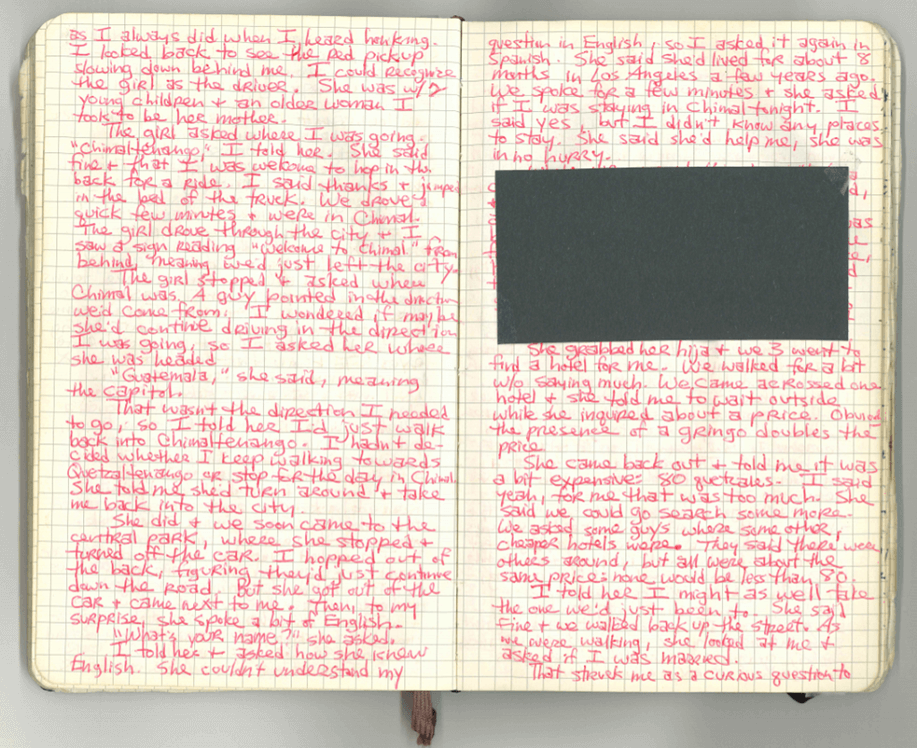 as I always did when I heard honking.
I looked back to see the red pickup
slowing down behind me. I could recognize
the girl as the driver. She was w/2
young children + an older woman I
took to be her mother.
The girl asked where I was going.
"Chimaltenango," I told her. She said
fine + that I was welcome to hop in the
back for a ride. I said thanks + jumped
in the bed of the truck. We drove a
quick few minutes + were in Chimal.
The girl drove through the city + I
saw a sign reading "Welcome to Chimal" from
behind, meaning we'd just left the city.
The girl stopped + asked where
Chimal was. A guy pointed in the direction
we'd come from. I wondered if maybe
she'd continue driving in the direction
I was going, so I asked her where
she was headed
"Guatemala," she said, meaning
the capitol.
That wasn't the direction I needed
to go, so I told her I'd just walk
back into Chimaltenango. I hadn't de-
cided whether I keep walking towards
Quetzaltenango or stop for the day in Chimal.
She told me she'd turn around + take
me back into the city.
She did + we soon came to the
central park, where she stopped +
turned off the car. I hopped out of
the back, figuring they'd just continue
down the road. But she got out of the
car + came next to me. Then, to my
surprise, she spoke a bit of English.
"What's your name?" she asked.
I told her + asked how she knew
English. She couldn't understand my
question in English, so I asked it again in
Spanish. She said she'd lived for about 8
months in Los Angeles a few years ago.
We spoke for a few minutes + she asked
if I was staying in Chimal tonight. I
said yes, but I didn't know any places
to stay. She said she'd help me, she was
in no hurry.
She grabbed her hija + we 3 went to
find a hotel for me. We walked for a bit
w/o saying much. We came acrossed one
hotel + she told me to wait outside
while she inquired about a price.
the presence of a gringo doubles the
price.
She came back out + told me it was
a bit expensive: 80 quetzales. I said
yeah, for me that was too much. She
said we could go search some more.
We asked some guys where some other,
cheaper hotels were. They said there were
others around, but all were about the
same price: none would be less than 80.
I told her I might as well take
the one we'd just been to. She said
fine + we walked back up the street. As
we were walking, she looked at me +
asked if I was married.
That struck me as a curious question to